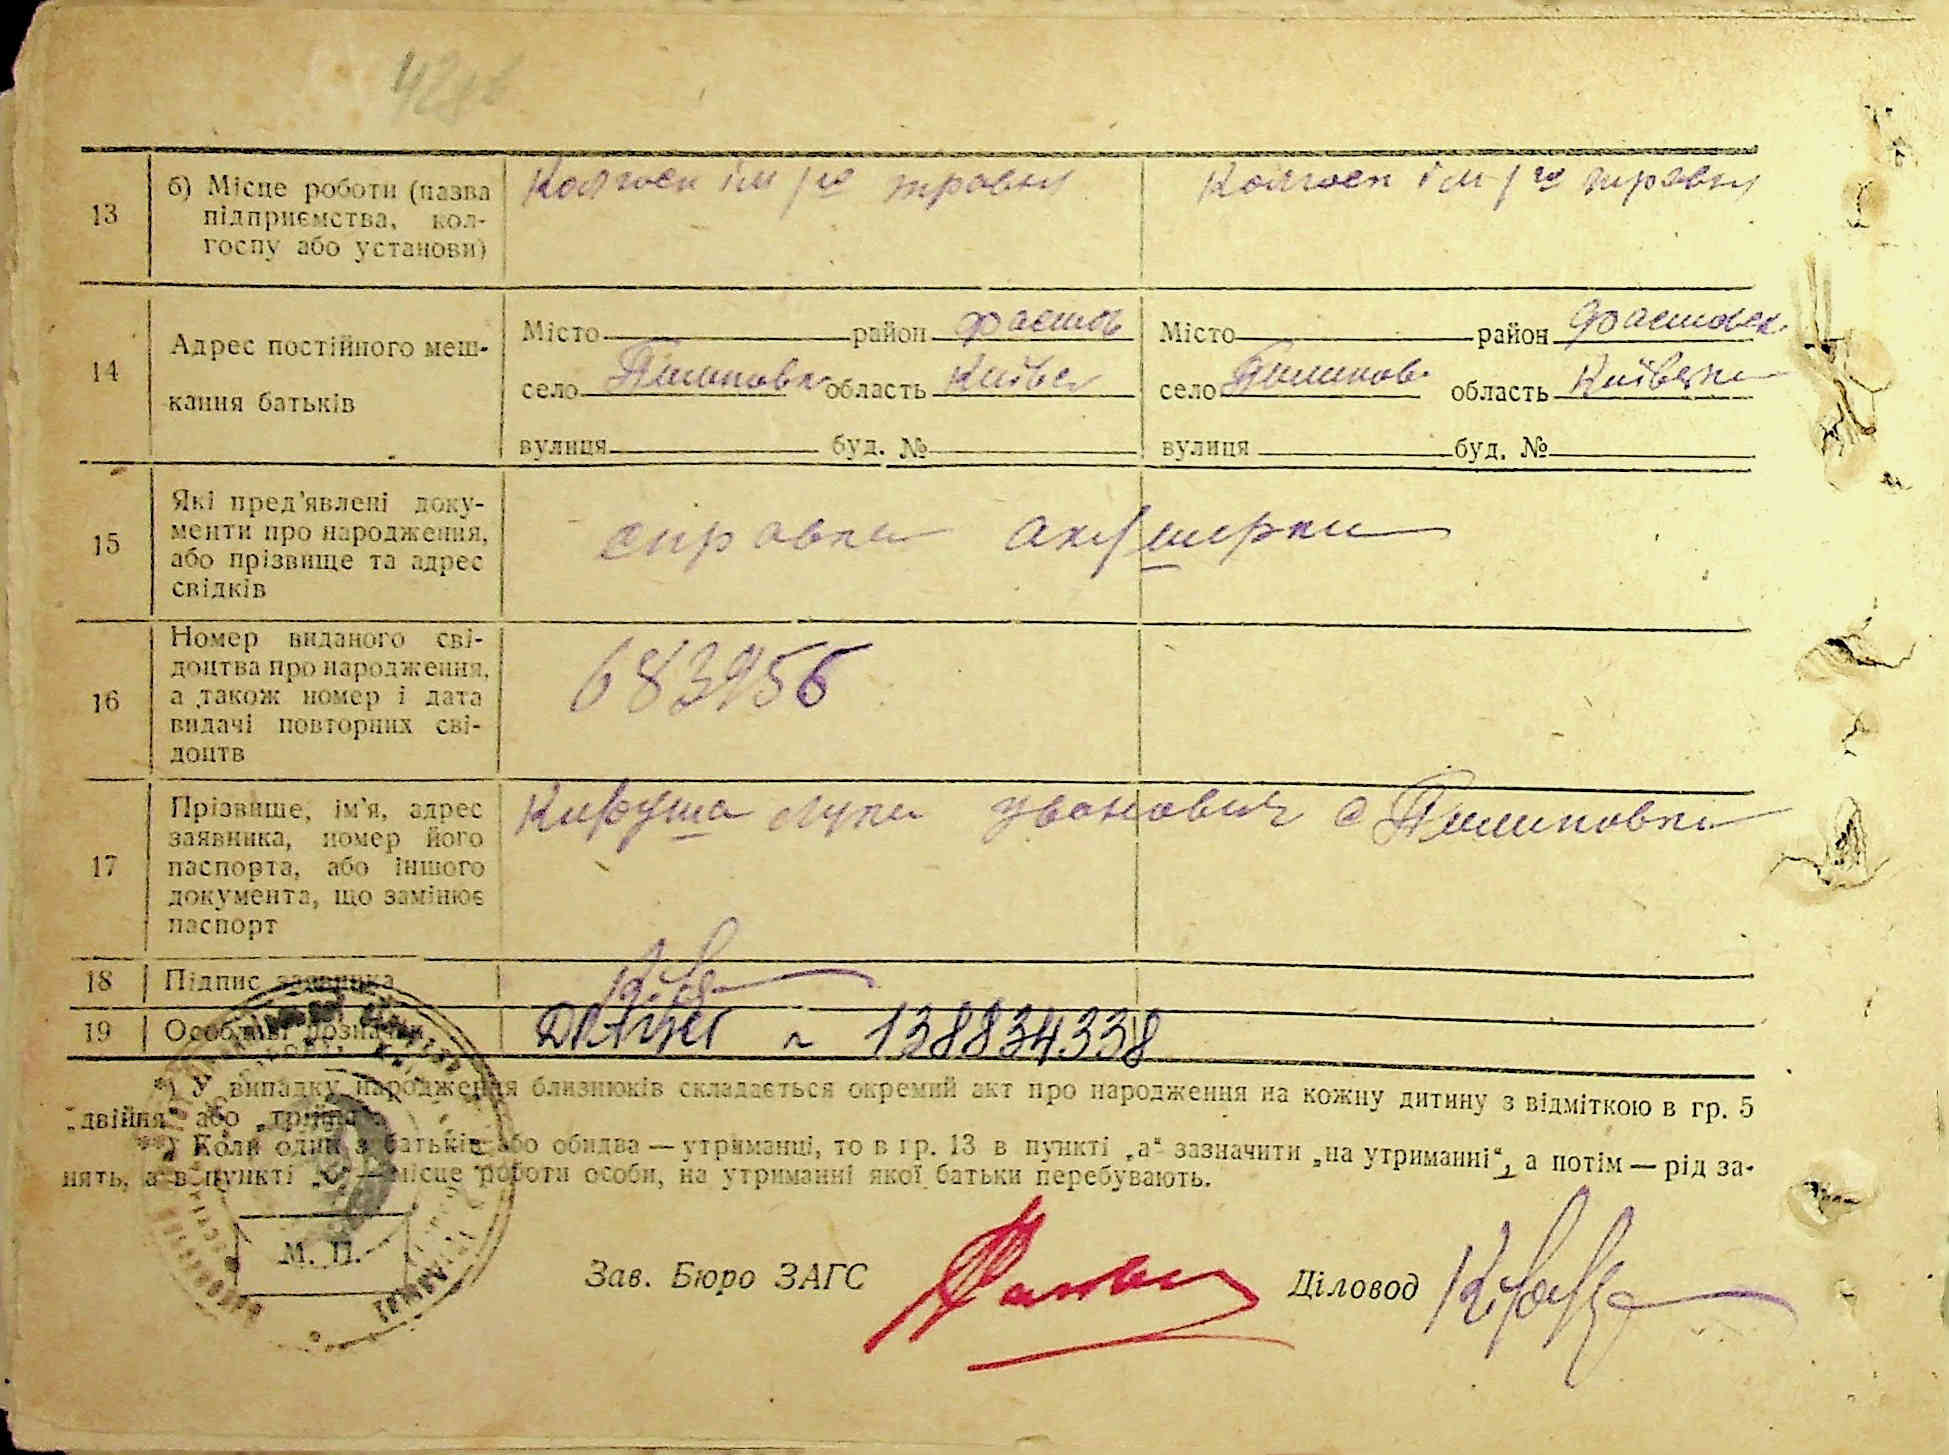 13
б) Місце роботи (назва
підприємства, кол-
госпу або установи)
Колгосп ім 1го травня
Колгосп ім 1го травня
14
Адрес постійного меш-
кання батьків
Місто район Фастов
село Пилиповка область Київск
вулиця буд. №
Місто район Фастовск.
село Пилиповк область Київська
вулиця буд. №
15
Які пред'явлені доку-
менти про народження,
або прізвище та адрес
свідків
справка акушерки
16
Номер виданого сві-
доцтва про народження,
а також номер і дата
видачі повторних сві-
доцтв
683956
17
Прізвище, ім'я, адрес
заявника, номер його
паспорта, або іншого
документа, що замінює
паспорт
Лука Іванович с Пилиповка
18
Підпис заявника
19
Особливі дозначки
138834338
*) У випадку народження близнюків складається окремий акт про народження на кожну дитину з відміткою в гр. 5
„двійня" або „трійня".
**) Коли один з батьків або обидва — утриманці, то в гр. 13 в пункті „а" зазначити „на утриманні", а потім — рід за-
нять, а в пункті „б" — місце роботи особи, на утриманні якої батьки перебувають.
М. П.
Зав. Бюро ЗАГС
Діловод